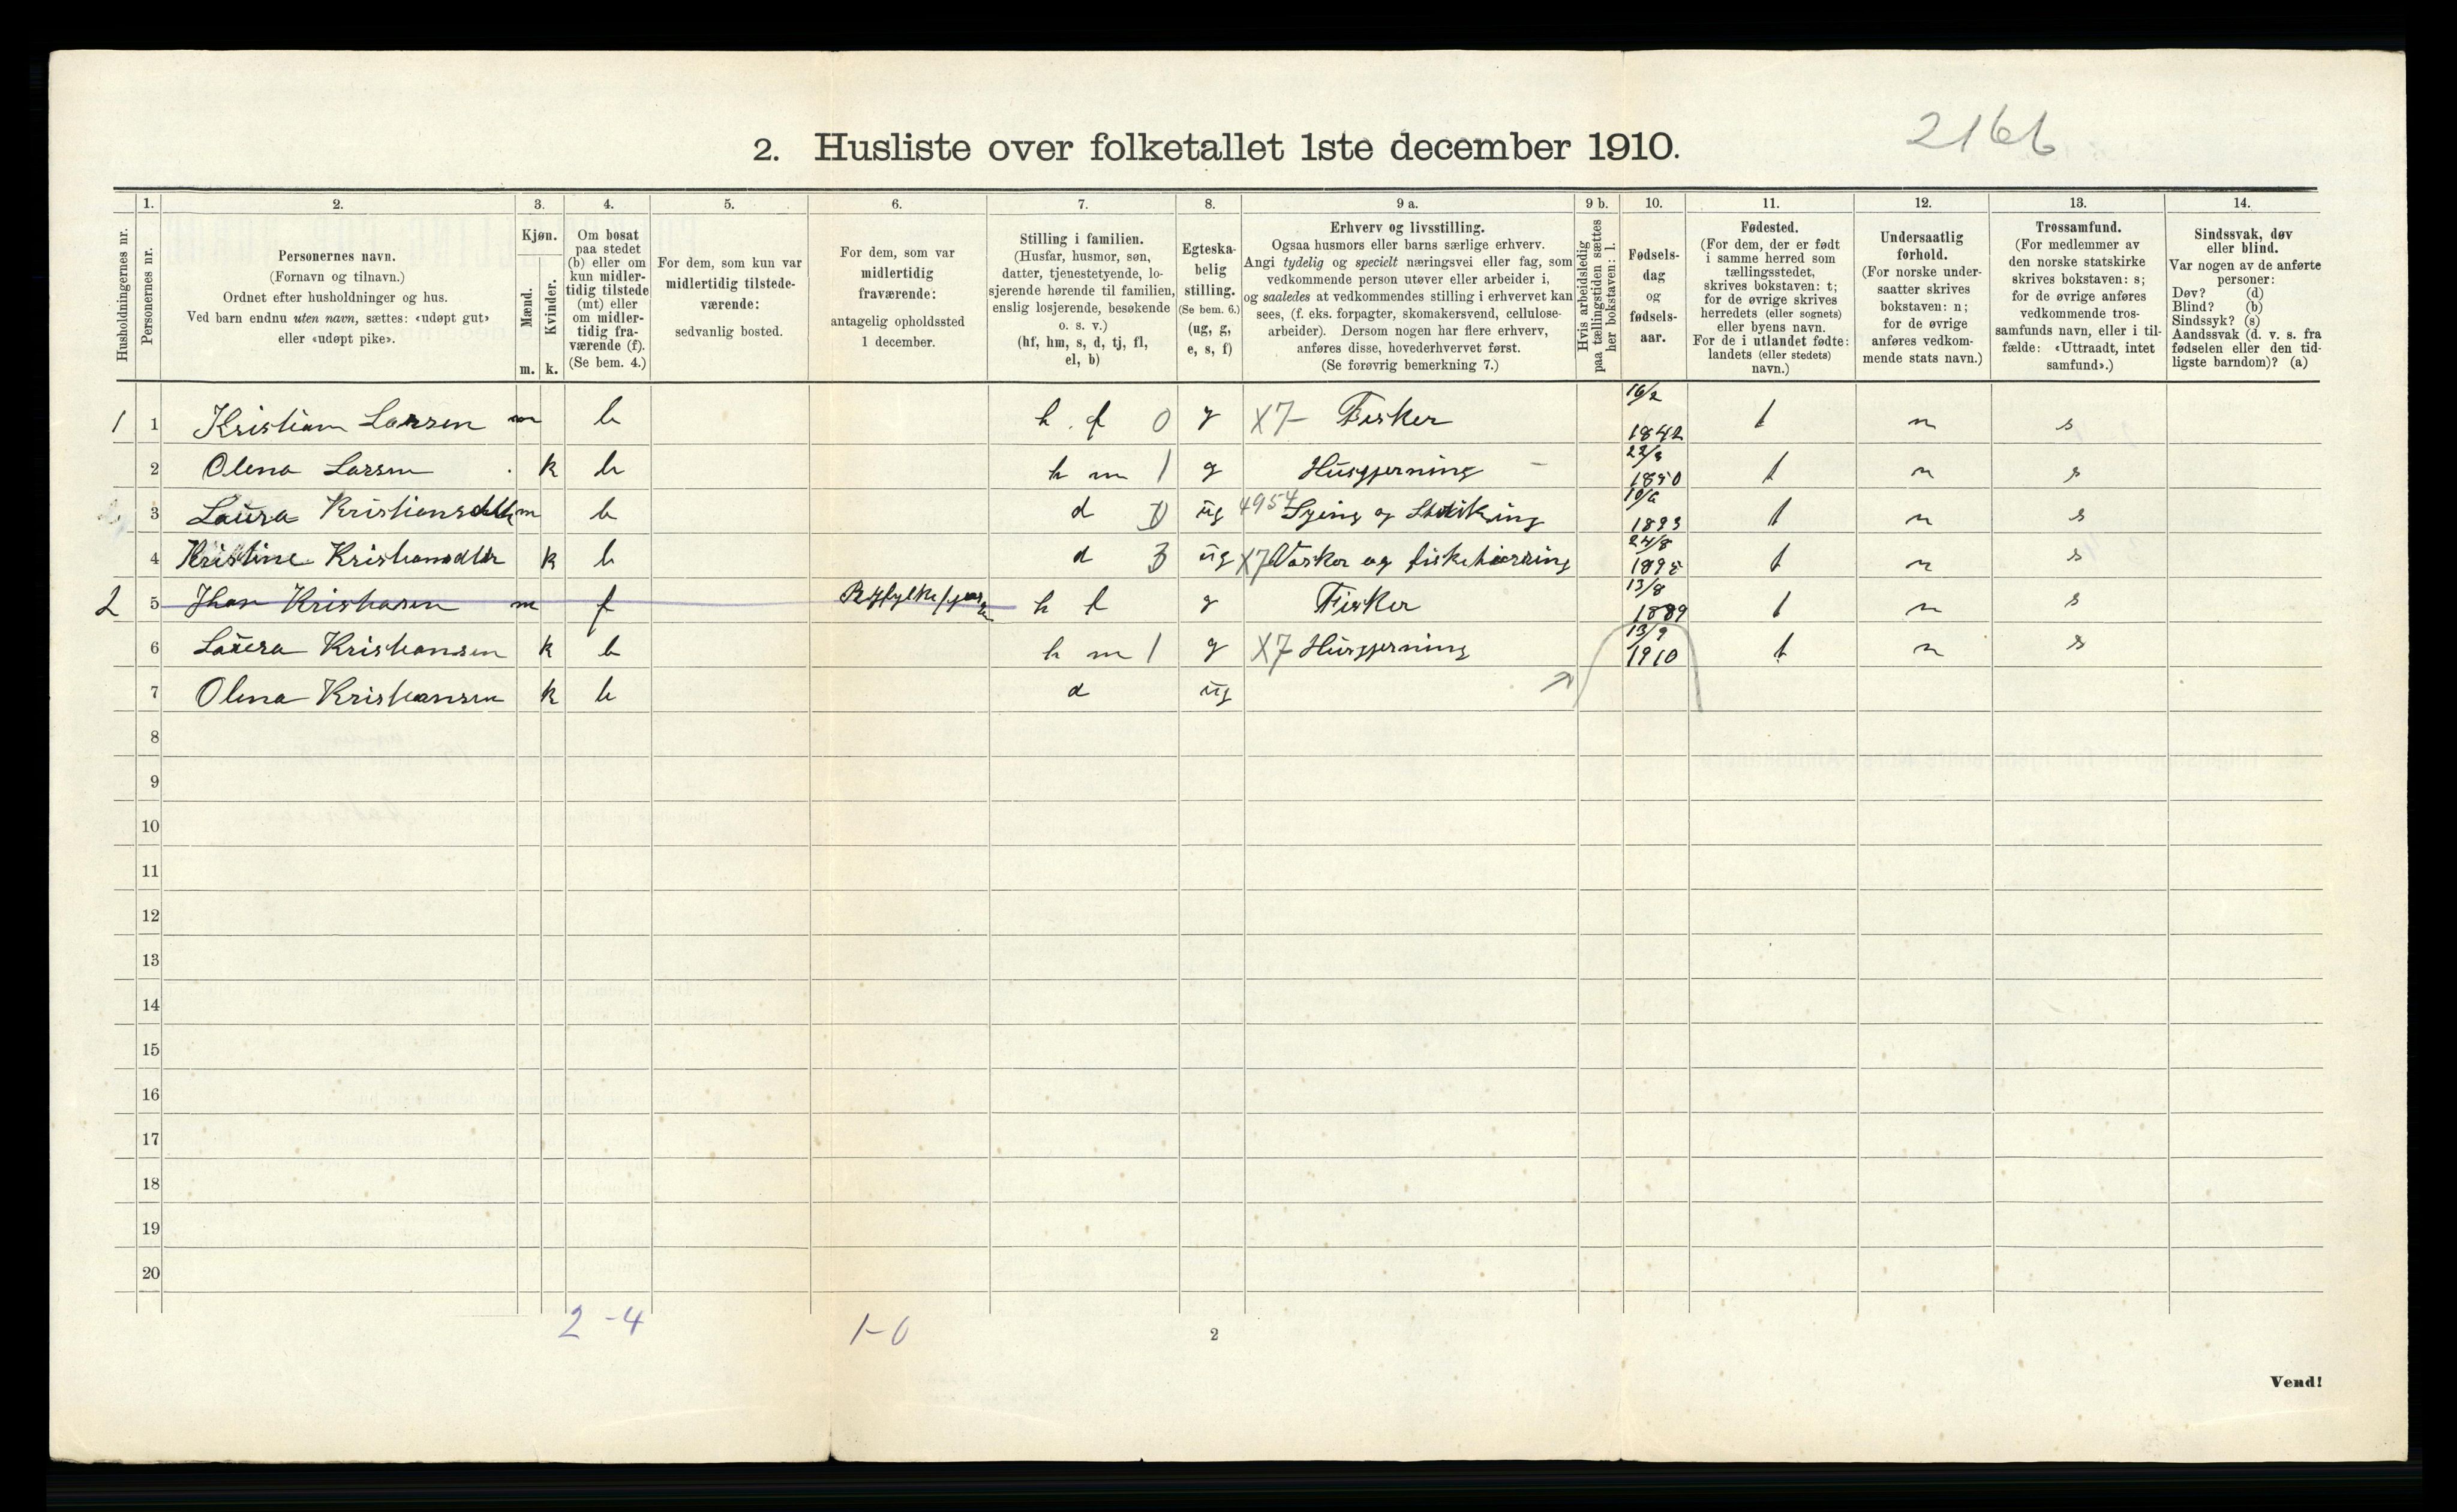 2166
2. Husliste over folketallet 1ste december 1910.
1. 2. 3. 4. 5. 6. 7. 8. 9 a. 9 b. 10. 11. 12. 13. 14.
Husholdningernes nr.
Personernes nr.
Personernes navn.
(Fornavn og tilnavn.)
Ordnet efter husholdninger og hus.
Ved barn endnu uten navn, sættes: «udøpt gut»
eller «udøpt pike».
Kjøn.
Mænd.
Kvinder.
m. k.
Om bosat
paa stedet
(b) eller om
kun midler-
tidig tilstede
(mt) eller
om midler-
tidig fra-
værende (f).
(Se bem. 4.)
For dem, som kun var
midlertidig tilstede-
værende:
sedvanlig bosted.
For dem, som var
midlertidig
fraværende:
antagelig opholdssted
1 december.
Stilling i familien.
(Husfar, husmor, søn,
datter, tjenestetyende, lo-
sjerende hørende til familien,
enslig losjerende, besøkende
o. s. v.)
(hf, hm, s, d, tj, fl,
el, b)
Egteska-
belig
stilling.
(Se bem. 6.)
(ug, g,
e, s, f)
Erhverv og livsstilling.
Ogsaa husmors eller barns særlige erhverv.
Angi tydelig og specielt næringsvei eller fag, som
vedkommende person utøver eller arbeider i,
og saaledes at vedkommendes stilling i erhvervet kan
sees, (f. eks. forpagter, skomakersvend, cellulose-
arbeider). Dersom nogen har flere erhverv,
anføres disse, hovederhvervet først.
(Se forøvrig bemerkning 7.)
Hvis arbeidsledig
paa tællingstiden sættes
her bokstaven: l.
Fødsels-
dag
og
fødsels-
aar.
Fødested.
(For dem, der er født
i samme herred som
tællingsstedet,
skrives bokstaven: t;
for de øvrige skrives
herredets (eller sognets)
eller byens navn.
For de i utlandet fødte:
landets (eller stedets)
navn.)
Undersaatlig
forhold.
(For norske under-
saatter skrives
bokstaven: n;
for de øvrige
anføres vedkom-
mende stats navn.)
Trossamfund.
(For medlemmer av
den norske statskirke
skrives bokstaven: s;
for de øvrige anføres
vedkommende tros-
samfunds navn, eller i til-
fælde: «Uttraadt, intet
samfund».)
Sindssvak, døv
eller blind.
Var nogen av de anførte
personer:
Døv? (d)
Blind? (b)
Sindssyk? (s)
Aandssvak (d. v. s. fra
fødselen eller den tid-
ligste barndom)? (a)
1 1 Kristian Larsen m b h. f 0 g X7- Fisker 16/2 1842 t n s
2 Olena Larsen k b h m 1 g Husgjerning - 22/9 1850 t n s
3 Laura Kristiansdtr m b d ug 4954 Sying og Strikking 10/6 1893 t n s
4 Kristine Kristiansdtr k b d 3 ug X7 Vasker og fiskehærring 24/8 1895 t n s
2 5 Jhan Kristiasen m f h f g Fisker 13/8 1889 t n s
6 Laura Kristiansen k b h m 1 g X7 Husgjerning 13/9 1910 t n s
7 Olena Kristiansen k b d ug
8
9
10
11
12
13
14
15
16
17
18
19
20
2 - 4 1-0
2
Vend!